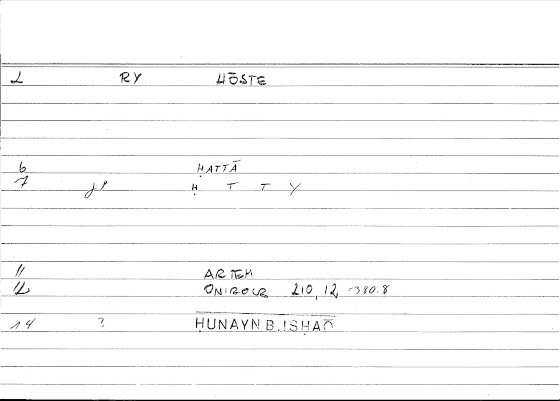 2 RY HŌSTE
6 ḤATTĀ
7 Ḥ T T Y
11 ARTEM
12 ONIROCR 210, 12, -380.8
14 ? ḤUNAYN B. ISḤAQ